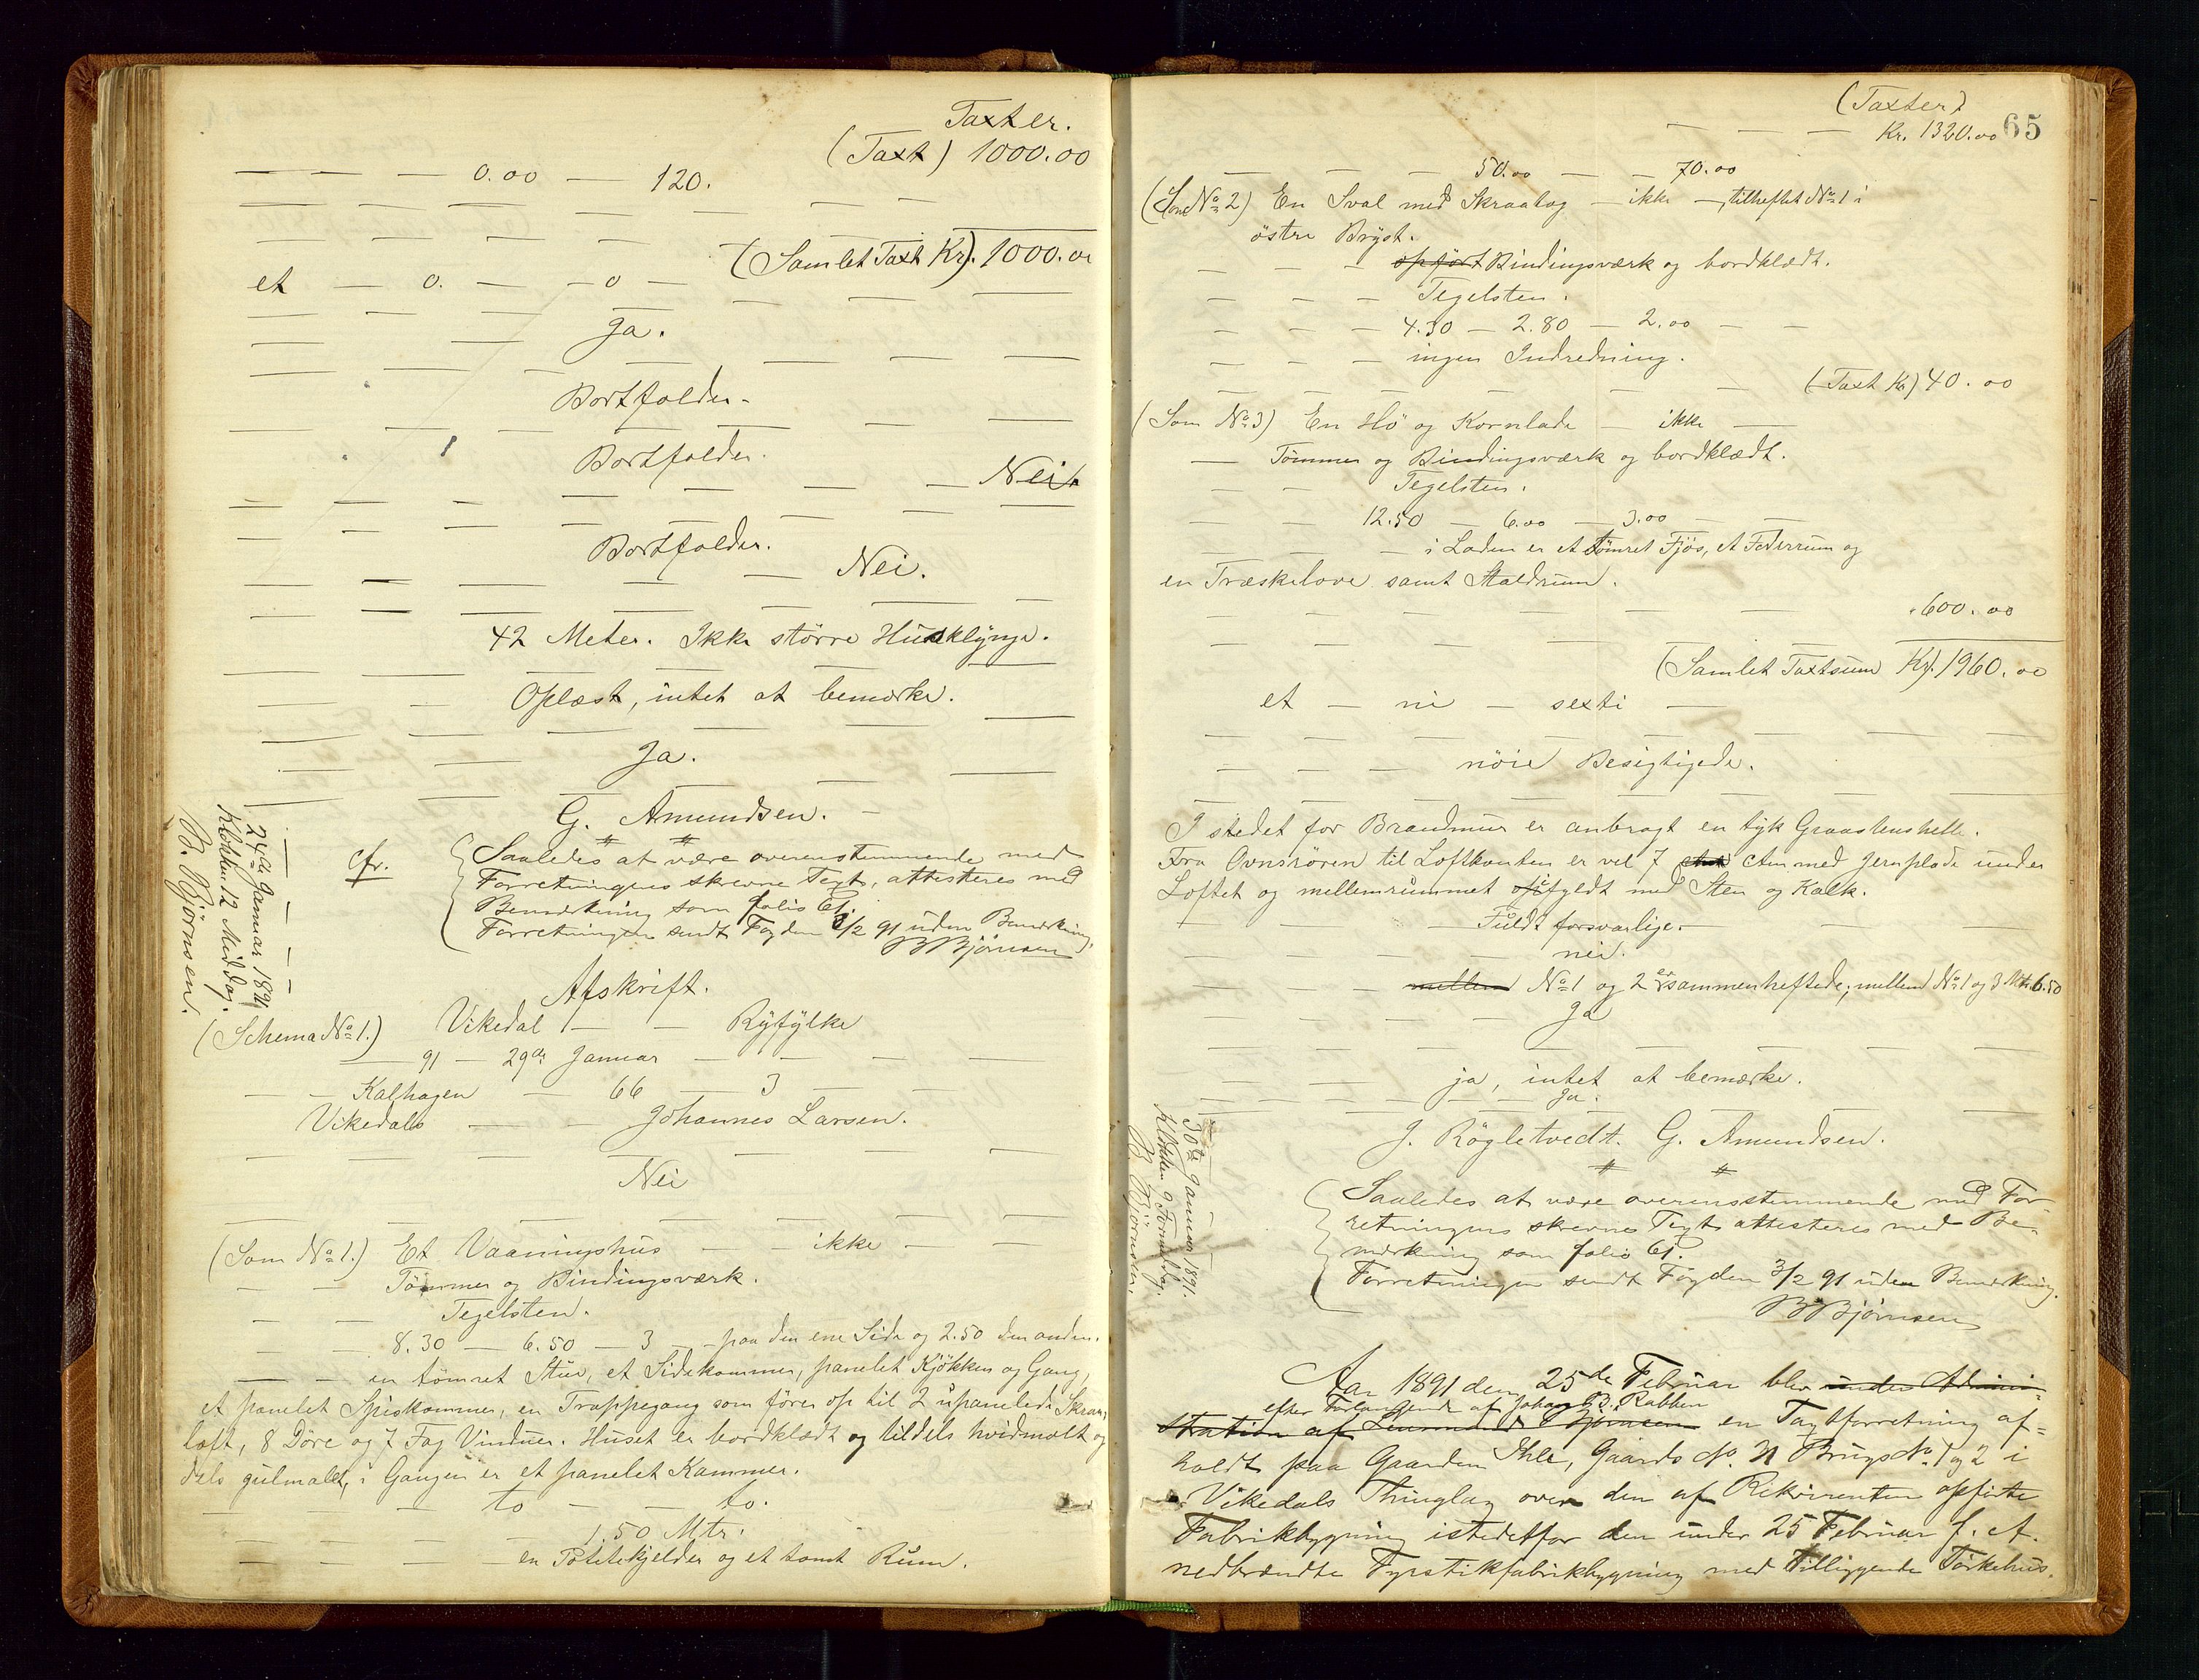 Taxter.
(Taxt) 1000.00
— — — 0.00 — 120.
(Samlet Taxt Kr). 1000.00
et — 0. — — 0 —
Ja.
Bortfalder.
Bortfalder.
— Nei.
Bortfalder.
— Nei.
42 Meter. Ikke större Husklynge.
Oplæst, intet at bemærke.
Ja.
G. Amundsen. —
cfr. Saaledes at være overensstemmende med
Forretningens skrevne Text, attesteres med
Bemærkning som folio 61.
Forretningen sendt Fogden 3/2 91 uden Bemærkning.
B Bjørnsen
24de Januar 1891
Klokken 12 Middag.
B. Bjørnsen.
Afskrift.
(Schema No 1.) Vikedal — — Ryfylke
— 91 — 29de Januar — — — —
— — Kalhagen — 66 — 3 — —
Vikedals — — Johannes Larsen.
Nei
(Som No 1.) Et Vaaningshus — — ikke — —
— — Tømmer og Bindingsværk.
— — Tegelsten.
— — 8.30 — 6.50 — 3 — paa den ene Side og 2.50 den anden.
— — en tømret Stue, et Sidekammer, panelet Kjökken og Gang,
et panelet Spiskammer, en Trappegang som fører op til 2 upanelede Skraa-
loft, 8 Döre og 7 Fag Vinduer. Huset er bordklædt og tildels hvidmalt og
dels gulmalet, i Gangen er et panelet Kammer.
— — — to — — to.
— — — — 1.50 Mtr.
— — — — en Potetekjelder og et tomt Rum.
(Taxter)
— — — Kr. 1320.00
65
— — — 50.00 — — 70.00
(Som No 2) En Sval med Skraatag — ikke —, tilheftet No 1 i
östre Bryst.
— — — opført Bindingsværk og bordklædt.
— — — Tegelsten.
— — — 4.30 — 2.80 — 2.00 — —
— — — ingen Indredning.
(Taxt Kr) 40.00
(Som No 3) En Hö og Kornlade — ikke —
— Tömmer og Bindingsværk og bordklædt.
— — Tegelsten.
— — 12.50 — 6.00 — 3.00 — —
— — — i Laden er et tömret Fjös, et Foderrum og
en Træskelove samt Staldrum.
600.00
(Samlet Taxtsum Kr). 1960.00
et — ni — sexti —
— — — nöie Besigtigede.
I stedet for Brandmur er anbragt en tyk Graastenshelle.
Fra Ovnsrören til Loftkanten er vel 7 Ctm med Jernplade under
Loftet og mellemrummet opfyldt med Sten og Kalk.
— — — Fuldt forsvarlige. — —
— — — — nei.
— — — mellem No 1 og 2 er sammenheftede, mellem No 1 og 3 Mtr. 6.50
— — — — Ja
— — — ja, intet at bemærke.
— — — — Ja.
J. Rögletvedt. G. Amundsen.
Saaledes at være overensstemmende med For-
retningens skrevne Text attesteres med Be-
mærkning som folio 61.
Forretningen sendt Fogden 3/2 91 uden Bemærkning.
B Bjørnsen
30te Januar 1891.
Klokken 9 Formiddag.
B. Bjørnsen.
Aar 1891 den 25de Februar blev under Admini-
efter Forlangende af Johan B. Rabben
stration af Lensmand B Bjørnsen en Taxtforretning af-
holdt paa Gaarden Ihle, Gaards No. Brugs No 1 og 2 i
Vikedals Thinglag over den af Rekvirenten opførte
Fabrikbygning istedetfor den under 25 Februar f. A.
nedbrændte Fyrstikfabrikbygning med tilliggende Törkehus.